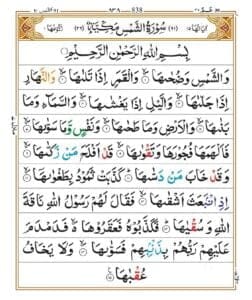 سُوْرَةُ الشَّمْسِ مَكِّيَّةٌ
بِسْمِ اللّٰهِ الرَّحْمٰنِ الرَّحِيْمِ
وَالشَّمْسِ وَضُحٰىهَا ۝ وَالْقَمَرِ اِذَا تَلٰىهَا ۝ وَالنَّهَارِ
اِذَا جَلّٰىهَا ۝ وَالَّيْلِ اِذَا يَغْشٰىهَا ۝ وَالسَّمَآءِ وَمَا
بَنٰىهَا ۝ وَالْاَرْضِ وَمَا طَحٰىهَا ۝ وَنَفْسٍ وَّمَا سَوّٰىهَا ۝
فَاَلْهَمَهَا فُجُوْرَهَا وَتَقْوٰىهَا ۝ قَدْ اَفْلَحَ مَنْ زَكّٰىهَا ۝
وَقَدْ خَابَ مَنْ دَسّٰىهَا ۝ كَذَّبَتْ ثَمُوْدُ بِطَغْوٰىهَآ ۝
اِذِ انْۢبَعَثَ اَشْقٰىهَا ۝ فَقَالَ لَهُمْ رَسُوْلُ اللّٰهِ نَاقَةَ
اللّٰهِ وَسُقْيٰهَا ۝ فَكَذَّبُوْهُ فَعَقَرُوْهَا ۝ فَدَمْدَمَ
عَلَيْهِمْ رَبُّهُمْ بِذَنْۢبِهِمْ فَسَوّٰىهَا ۝ وَلَا يَخَافُ
عُقْبٰهَا ۝